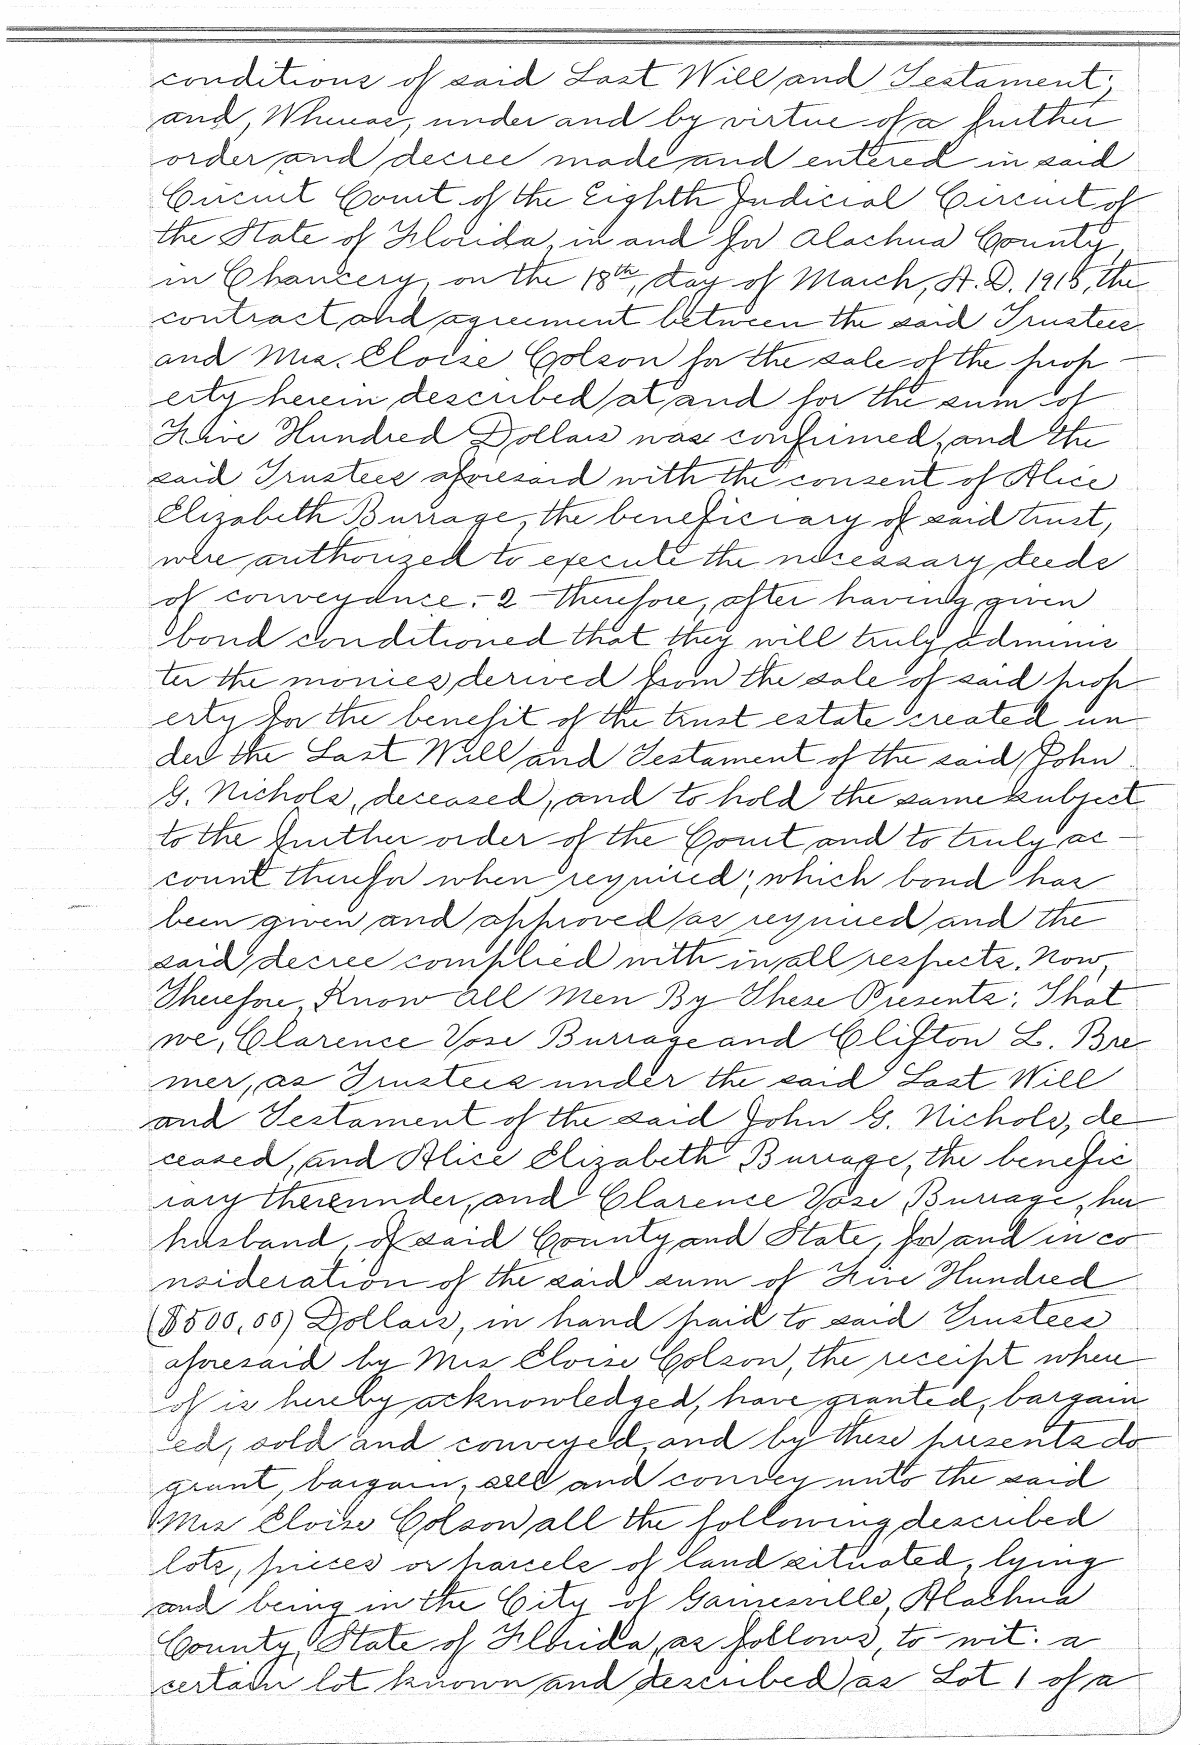 conditions of said Last Will and Testament;
and, Whereas, under and by virtue of a further
order and decree made and entered in said
Circuit Court of the Eighth Judicial Circuit of
the State of Florida, in and for Alachua County,
in Chancery, on the 18th, day of March, A.D. 1915, the
contract and agreement between the said Trustees
and Mrs. Eloise Colson for the sale of the prop-
erty herein described at and for the sum of
Five Hundred Dollars was confirmed, and the
said Trustees aforesaid with the consent of Alice
Elizabeth Burrage, the beneficiary of said trust,
were authorized to execute the necessary deeds
of conveyance.- 2 - therefore, after having given
bond conditioned that they will truly adminis
ter the monies derived from the sale of said prop
erty for the benefit of the trust estate created un
der the Last Will and Testament of the said John
G. Nichols, deceased, and to hold the same subject
to the further order of the Court and to truly ac-
count therefor when required; which bond has
been given and approved as required and the
said decree complied with in all respects. Now,
Therefore, Know All Men By These Presents: That
we, Clarence Vose Burrage and Clifton L. Bre
mer, as Trustees under the said Last Will
and Testament of the said John G. Nichols, de
ceased, and Alice Elizabeth Burrage, the benefic
iary thereunder, and Clarence Vose Burrage, her
husband, of said County and State, for and in co
nsideration of the said sum of Five Hundred
($500,00) Dollars, in hand paid to said Trustees
aforesaid by Mrs Eloise Colson, the receipt where
of is hereby acknowledged, have granted, bargain
ed, sold and conveyed, and by these presents do
grant, bargain, sell and convey unto the said
Mrs Eloise Colson all the following described
lots, pieces or parcels of land situated, lying
and being in the City of Gainesville, Alachua
County, State of Florida, as follows, to-wit: a
certain lot known and described as Lot 1 of a